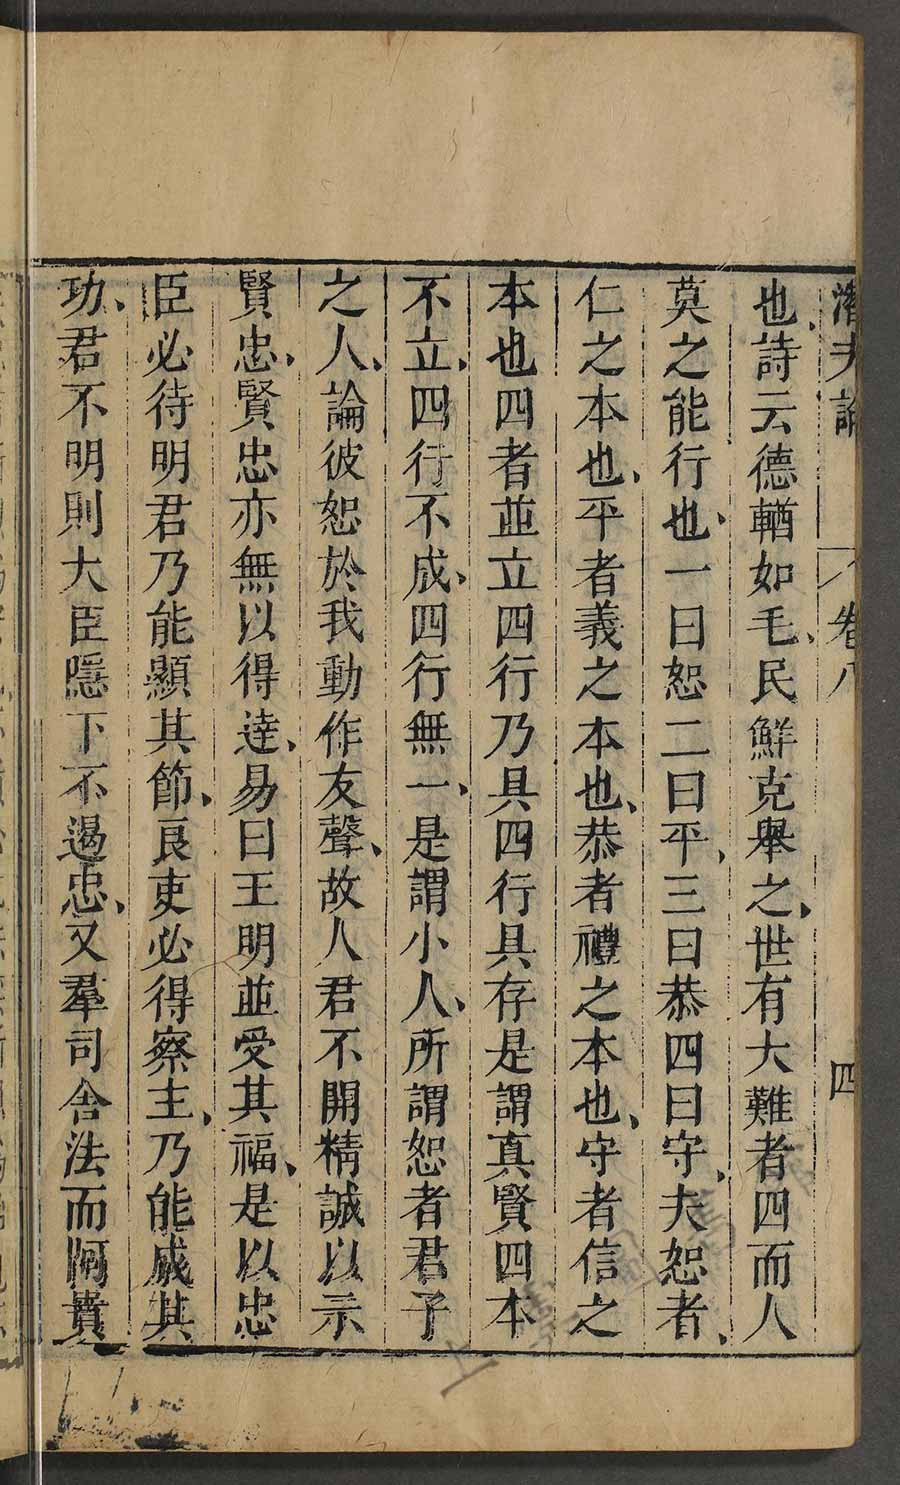 潛夫論 卷八 四
也詩云德輶如毛民鮮克舉之世有大難者四而人
莫之能行也一曰恕二曰平三曰恭四曰守夫恕者
仁之本也平者義之本也恭者禮之本也守者信之
本也四者並立四行乃具四行具存是謂真賢四本
不立四行不成四行無一是謂小人所謂恕者君子
之人論彼恕於我動作友聲故人君不開精誠以示
賢忠賢忠亦無以得達易曰王明並受其福是以忠
臣必待明君乃能顯其節良吏必得察主乃能成其
功君不明則大臣隱下不遏忠又羣司舍法而阿貴